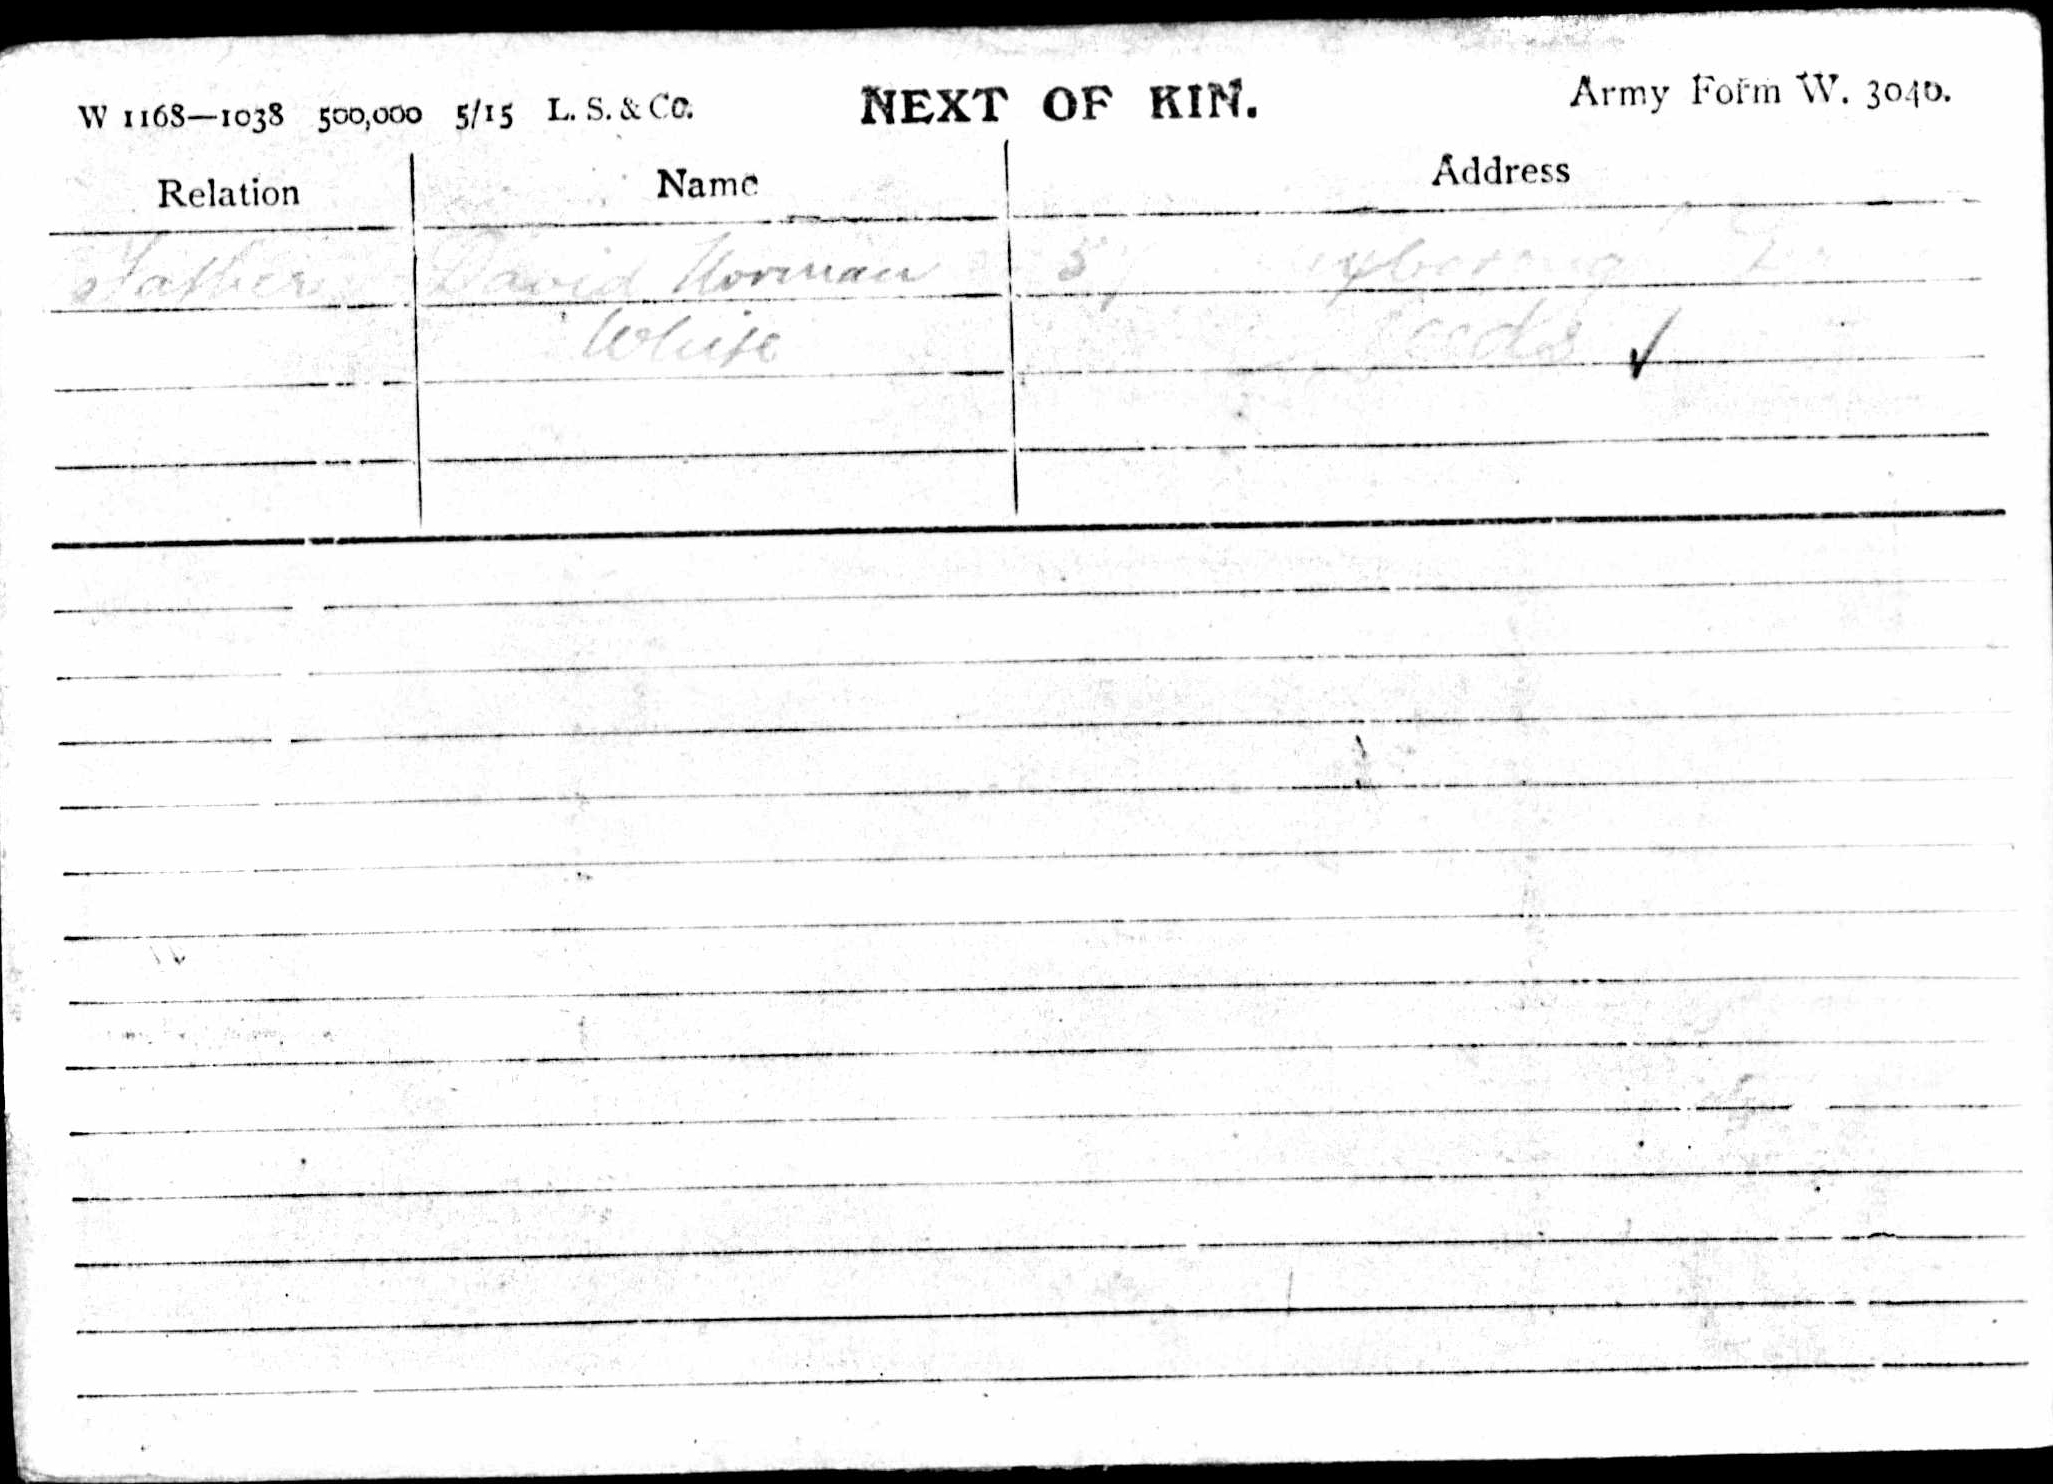 W 1168—1038 500,000 5/15 L. S. & Co. NEXT OF KIN. Army Form W. 3040.
Relation Name Address
Father David Norman 5,
White Leeds ✓